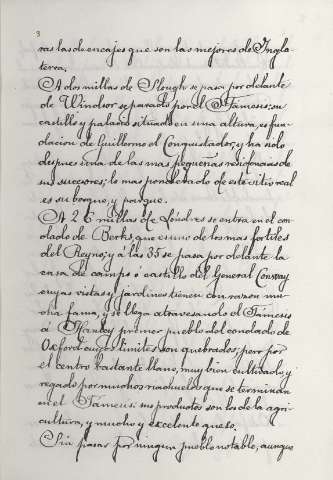 3
ras las de encajes que son las mejores de Ingla-
terra.
A dos millas de Slough se pasa por delante
de Windsor separado por el Támesis; su
castillo y palacio situado en una altura, es fun
dacion de Guillermo el Conquistador, y ha sido
despues una de las mas pequeñas residencias de
sus sucesores; lo mas ponderado de este sitio real
es su bosque, y parque.
A 26 millas de Londres se entra en el con
dado de Berks, que es uno de los mas fertiles
del Reyno; y á las 35 se pasa por delante la
casa de campo ó castillo del General Conway
cuyas vistas y jardines tienen con razon mu
cha fama, y se llega atravesando el Támesis
á Henley primer pueblo del condado de
Oxford cuyos limites son quebrados; pero por
el centro bastante llano, muy bien cultivado y
regado por muchos riachuelos que se terminan
en el Támesis: sus productos son los de la agri-
cultura, y mucho y excelente queso.
Sin pasar por ningun pueblo notable, aunque